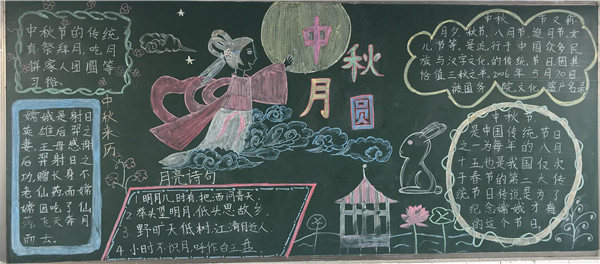 中秋节的传统
有祭拜月、吃月
饼家人团圆等
习俗。
中秋来历
嫦娥是射日
英雄后羿之
妻，王母感谢
后羿射日之
功，赠长身不
老仙药，而嫦
娥因吃了仙
药飞天奔月
而去。
中秋月圆
月亮诗句
1 明月几时有，把酒问青天
2 举头望明月，低头思故乡
3 野旷天低树，江清月近人
4 小时不识月，呼作白玉盘
中秋 节又称
月夕、秋节、八月节、追月节、女
儿节等，是流行于中国众多民
族与汉字文化的传统节日，因其
恰值三秋之半，2006年5月20日，
被国务院 文化遗产名录
中秋节
是中国传统节日
之一，为每年的八月
十五也是我国仅次
于春节的第二大传
统节日传说是为了
纪念嫦娥才有
的这个节日。